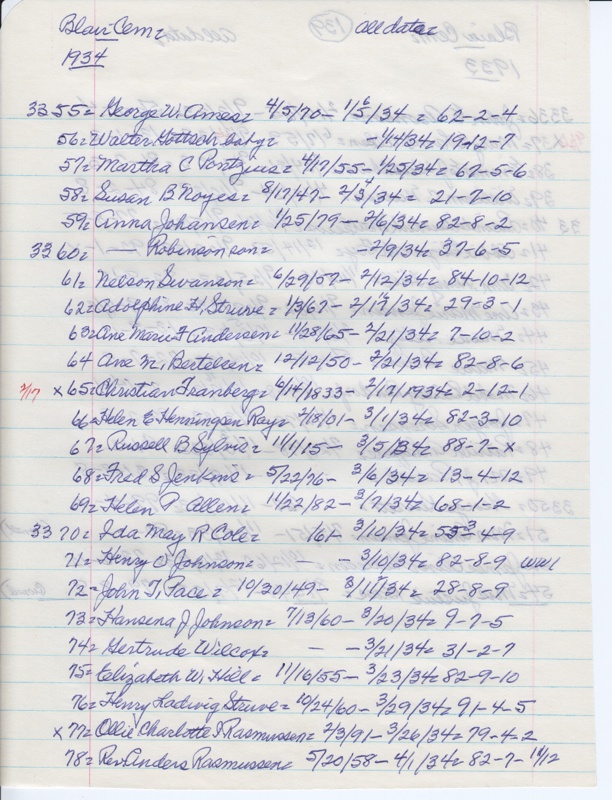 Blair Cem= All data=
1934
3355= George W. Ames= 4/5/70- 1/5/34= 62-2-4
6
56= Walter Hottsch baby= -1/14/34= 19-12-7
57= Martha C Pontzius= 4/17/55- 1/25/34= 67-5-6
58= Susan B Noyes= 8/17/47- 2/3/34= 21-7-10
4
59= Anna Johansen= 1/25/79- 2/6/34= 82-8-2
3360= — Robinson son= -2/9/34= 37-6-5
61= Nelson Swanson= 6/29/57- 2/12/34= 84-10-12
62= Adolphine H. Struve= 1/3/67- 2/17/34= 29-3-1
63= Ane Marie F Andersen= 11/28/65- 2/21/34= 7-10-2
64 Ane M. Bertelsen= 12/12/50- 2/21/34= 82-8-6
2/17 x 65= Christian Tranberg= 6/14/1833- 2/17/1934= 2-12-1
66= Helen E Henningsen Ray= 2/18/01- 3/1/34= 82-3-10
67= Russell B Sylvis= 11/1/15- 3/5/34= 88-7-x
68= Fred S Jenkins= 5/22/76- 3/6/34= 13-4-12
69= Helen P Allen= 11/22/82- 3/7/34= 68-1-2
3370= Ida May R Cole= 161- 3/10/34= 53-4-9
71= Henry O Johnson= - - 3/10/34= 82-8-9 WWI
72= John T. Pace= 10/20/49- 3/11/34= 28-8-9
73= Hansena J Johnson= 7/13/60- 3/20/34= 9-7-5
74= Gertrude Wilcox= - -3/21/34= 31-2-7
75= Elizabeth W. Hill= 11/16/55- 3/23/34= 82-9-10
76= Henry Ladwig Struve= 10/24/60- 3/29/34= 91-4-5
x 77= Ollie Charlotte Rasmussen= 2/3/91- 3/26/34= 79-4-2
78= Rev. Anders Rasmussen= 5/20/58- 4/1/34= 82-7-11/12